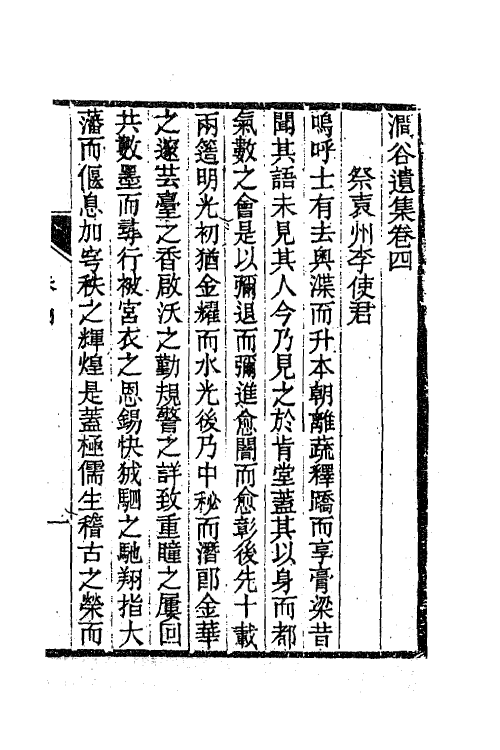 澗谷遺集卷四
祭袁州李使君
嗚呼士有去輿渫而升本朝離蔬釋蹻而享膏粱昔
聞其語未見其人今乃見之於肯堂蓋其以身而都
氣數之會是以彌退而彌進愈闇而愈彰後先十載
兩簉明光初猶金耀而水光後乃中秘而潛郎金華
之邃芸臺之香啟沃之勤規警之詳致重瞳之屢回
共數墨而尋行被宮衣之恩錫快狨駟之馳翔指大
藩而偃息加穹秩之輝煌是蓋極儒生稽古之榮而
一